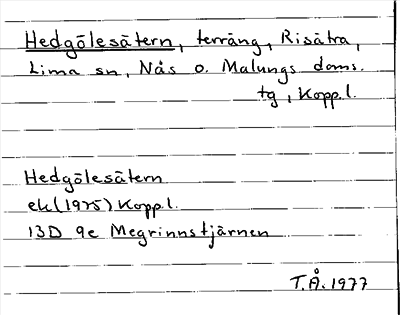 Hedgölesätern, terräng, Risätra,
Lima sn, Nås o. Malungs doms.
tg, Kopp.l.
Hedgölesätern
ek (1975) Kopp.l.
13D 9e Megrinnstjärnen
T.Å. 1977